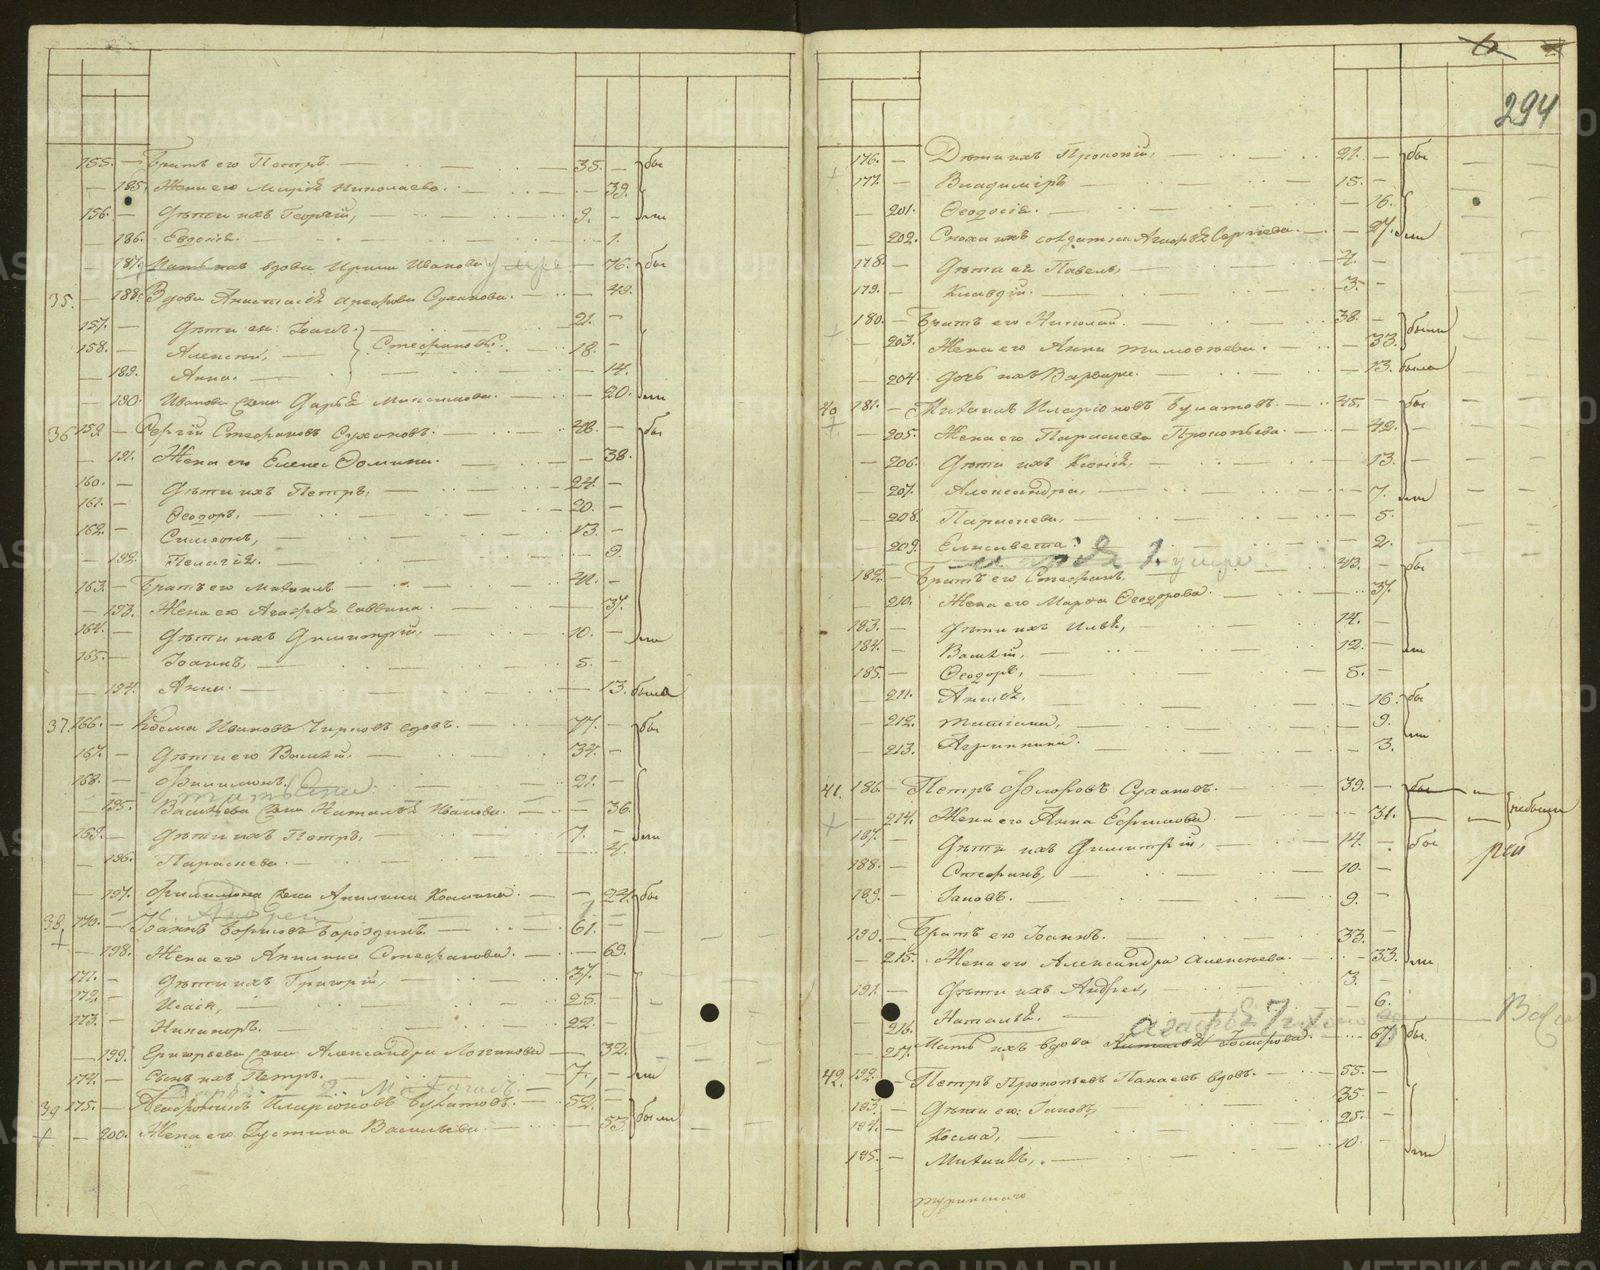 155. Братъ его Петръ. 35. бы
185. Жена его Марія Николаева. 39.
156. Дѣти ихъ Георгій, 9. ли
186. Евдокія. 1.
187. Мать ихъ вдова Ирина Иванова умре 76. бы
35. 188. Вдова Анастасія Агафонова Суханова. 49.
157. Дѣти ея: Іоаннъ, 21.
158. Алексѣй, Стефановы. 18.
189. Анна. 14.
190. Иванова жена Дарья Максимова. 20. ли
36 159. Сергій Стефановъ Сухановъ. 48. бы
191. Жена его Елена Фомина. 38.
160. Дѣти ихъ Петръ, 24.
161. Ѳеодоръ, 20.
162. Симеонъ, 13.
192. Пелагія. 9.
163. Братъ его Михаилъ 41.
193. Жена его Агафья Саввина. 37.
164. Дѣти ихъ Димитрій, 10. ли
165. Іоаннъ, 5.
194. Анна. 13. была
37. 166. Косма Ивановъ Чирковъ вдовъ. 77. бы
167. Дѣти его Василій, 34.
168. Филимонъ. 21.
Татьяна
195. Васильева жена Наталья Иванова. 36.
169. Дѣти ихъ Петръ, 7. ли
196. Параскева. 4.
197. Филимона жена Акилина Космина. 24. бы
с. Андрей 1
38. 170. Іоаннъ Борисовъ Бороздинъ. 61.
198. Жена его Акилина Стефанова. 69.
171. Дѣти ихъ Григорій, 37.
172. Исаія, 25.
173. Никаноръ. 22.
199. Григорьева жена Александра Логинова 32.
174. Сынъ ихъ Петръ. 7. ли
39 175. Иларіоновъ Булатовъ. 52.
200. Жена его Іустина Васильева. 53. были
294
176. Дѣти ихъ Прокопій, 21. бы
177. Владиміръ 15.
201. Ѳеодосія. 16.
202. Сноха ихъ солдатка Агафья Сергѣева. 27. ли
178. Дѣти ея Павелъ, 4.
179. Клавдій. 3.
180. Братъ его Николай. 38.
203. Жена его Анна Тимоѳеева. 33. были
204. Дочь ихъ Варвара. 13. была
40 181. Михаилъ Иларіоновъ Булатовъ. 45. бы
205. Жена его Параскева Прокопьева. 42.
206. Дѣти ихъ Ксенія, 13.
207. Александра, 7. ли
208. Параскева, 5.
209. Елисавета. 2.
1. умре
182. Братъ его Стефанъ. 43. бы
210. Жена его Марѳа Ѳеодорова. 37.
183. Дѣти ихъ Илья, 14.
184. Василій, 12. ли
185. Ѳеодоръ, 5.
211. Анисья, 16. бы
212. Татіана, 9.
213. Агриппина. 3. ли
41. 186. Петръ Флоровъ Сухановъ. 39. бы
214. Жена его Анна Ефимова. 31. небыли
187. Дѣти ихъ Димитрій, 14. бы
188. Стефанъ, 10.
189. Іаковъ. 9.
190. Братъ его Іоаннъ. 33.
215. Жена его Александра Алексѣева. 33. ли
191. Дѣти ихъ Андрей, 3.
216. Наталья. 6.
Агафья
217. Мать ихъ вдова 67. бы
42. 192. Петръ Прокопьевъ Панаевъ вдовъ. 55.
193. Дѣти его: Іаковъ, 35.
194. Косма, 25.
195. Михаилъ, 10. ли
Туринскаго